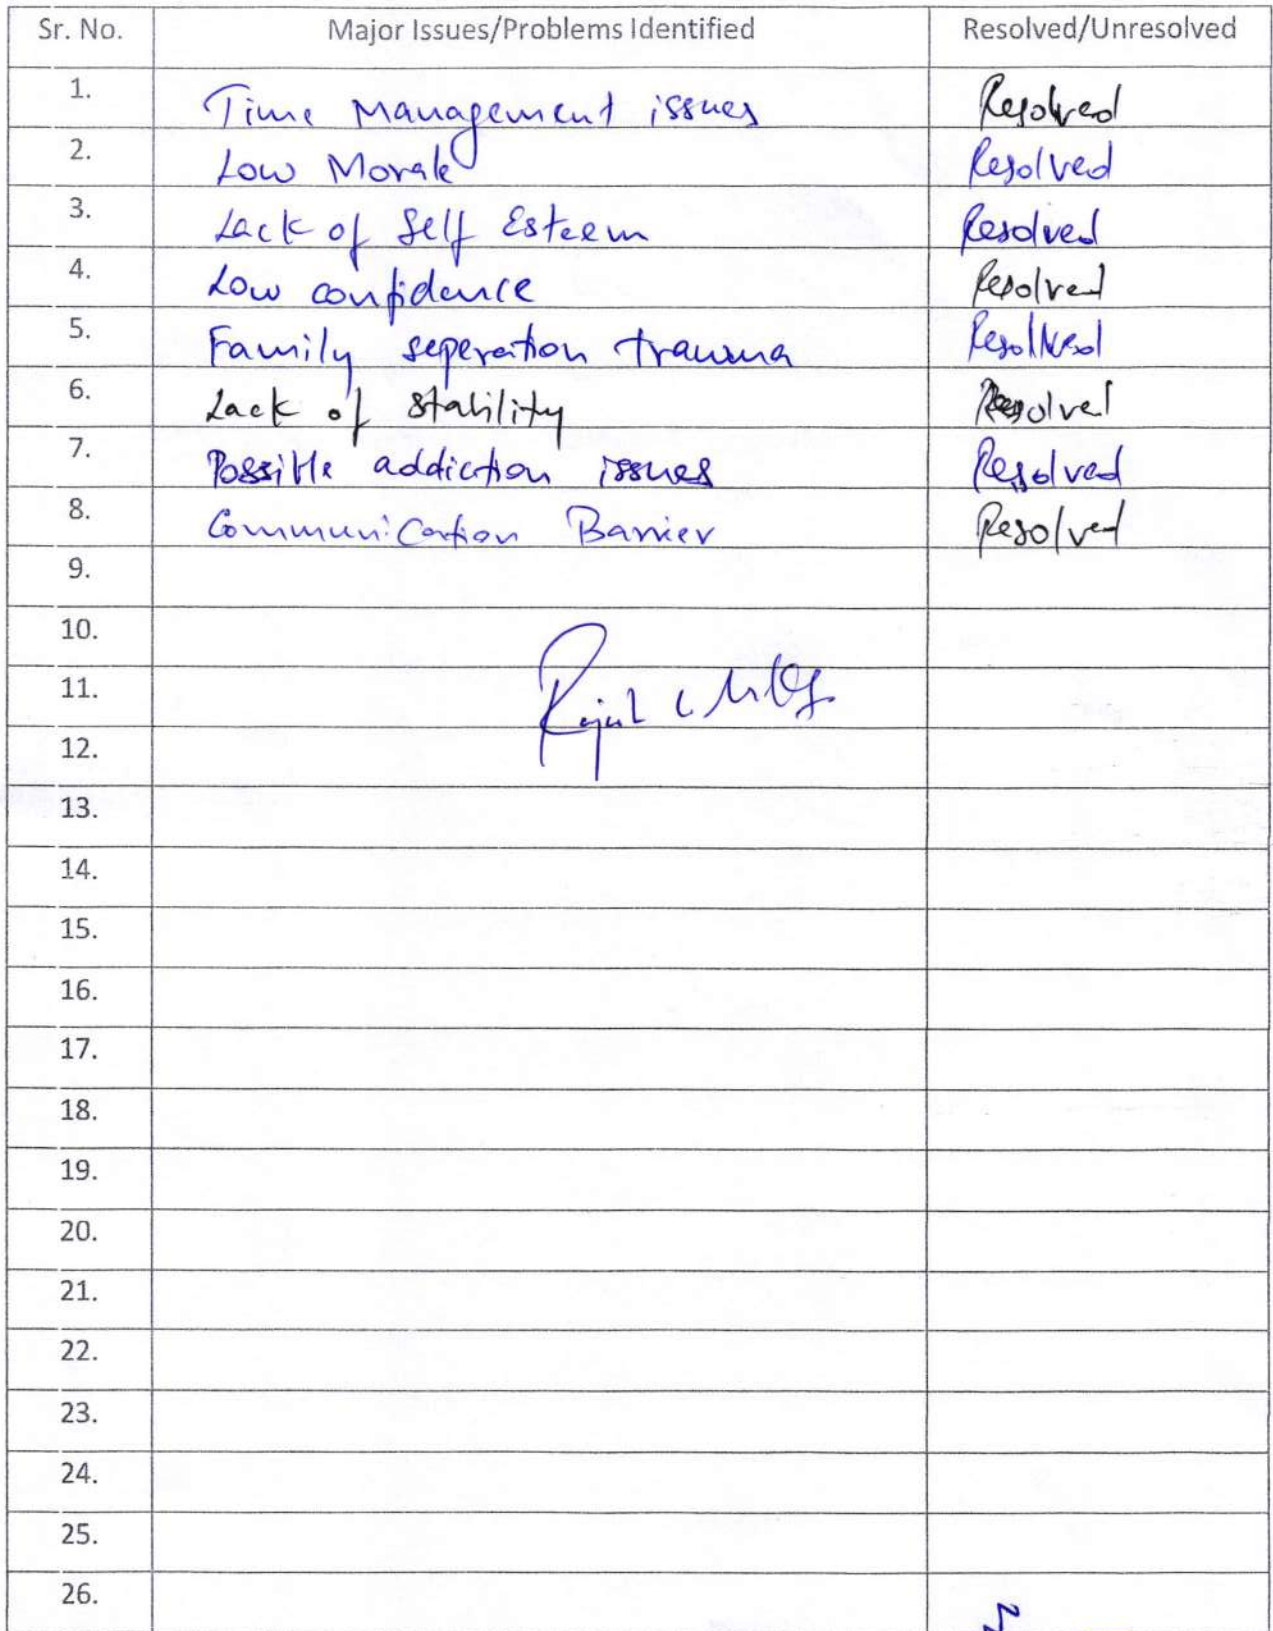 Sr. No. Major Issues/Problems Identified Resolved/Unresolved
1. Time Management issues Resolved
2. Low Morale Resolved
3. Lack of Self Esteem Resolved
4. Low confidence Resolved
5. Family seperation trauma Resolved
6. Lack of stability Resolved
7. Possible addiction issues Resolved
8. Communication Barrier Resolved
9.
10.
11.
12.
13.
14.
15.
16.
17.
18.
19.
20.
21.
22.
23.
24.
25.
26.